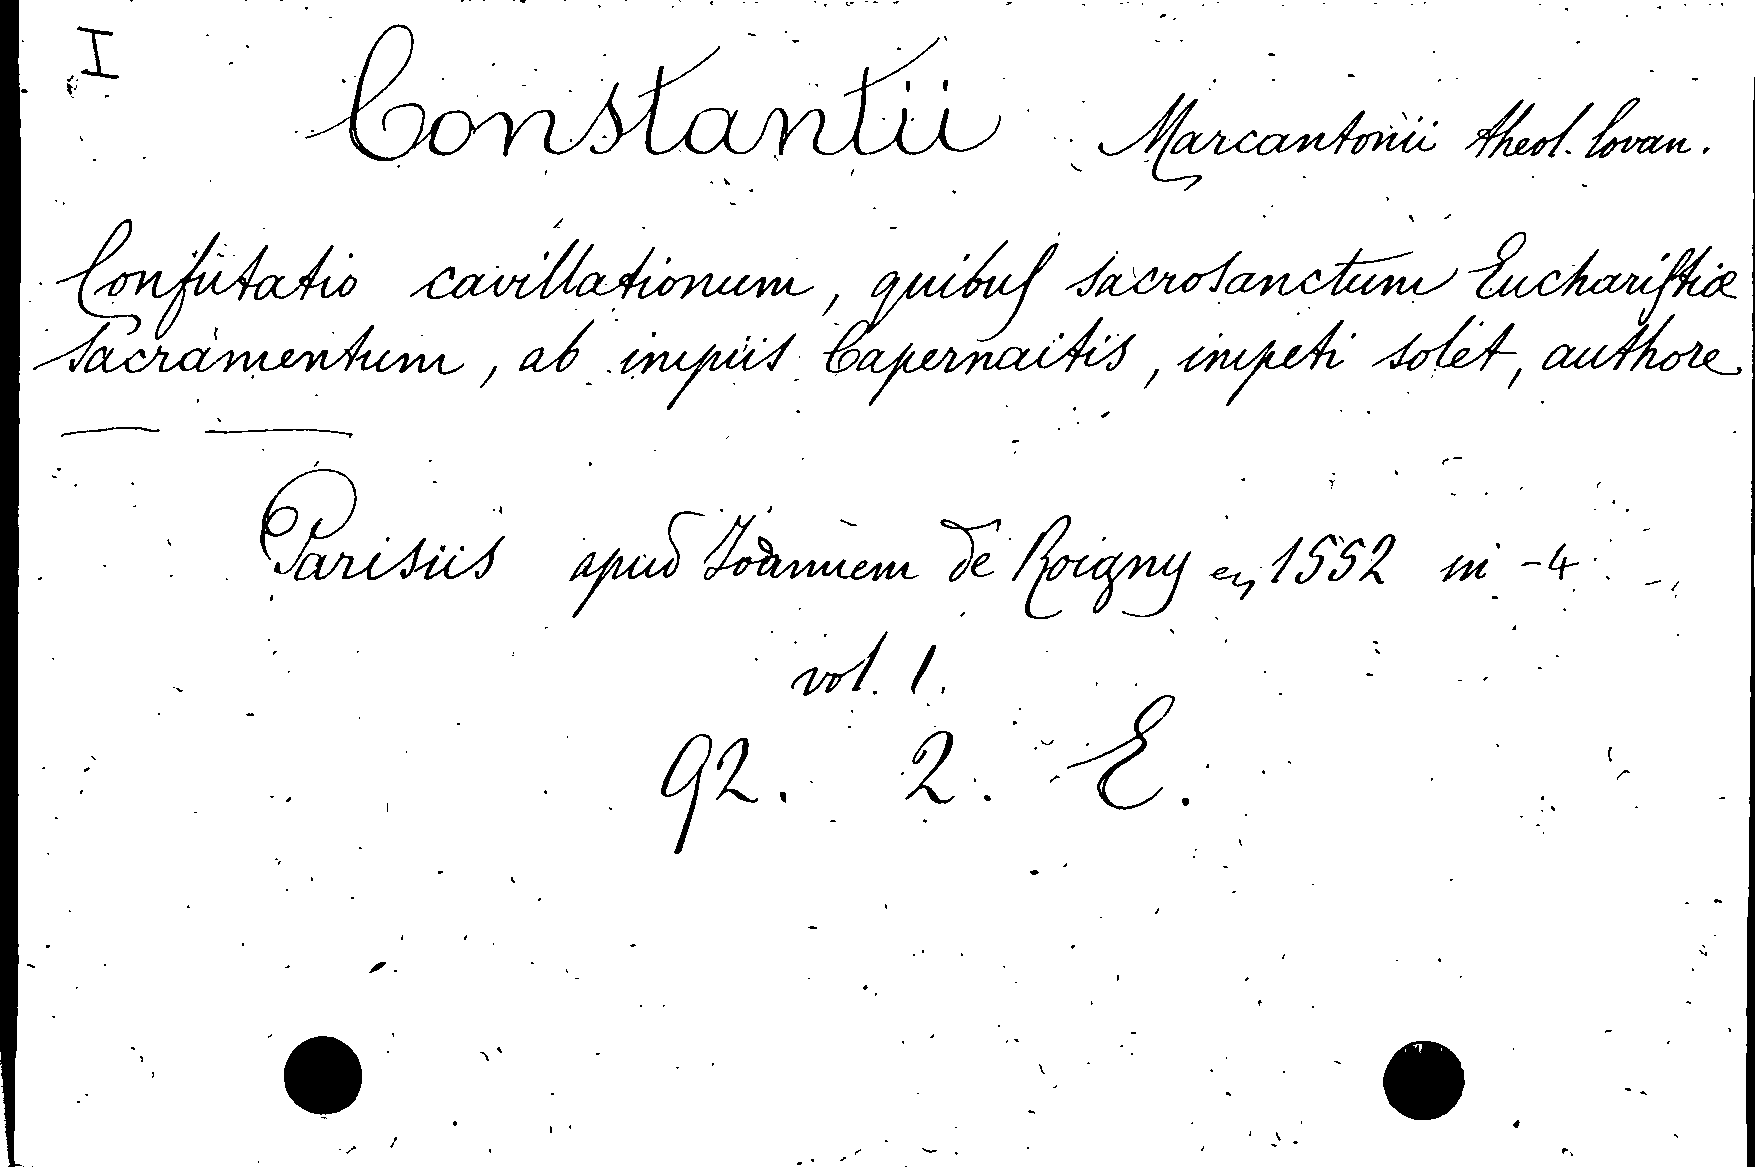 I
Constantii Marcantonii theol. lovan.
Confutatio cavillationum, quibus sacrosanctum Eucharistiæ
sacramentum, ab impiis Capernaitis, impeti solet, authore
— —
Parisiis apud Joannem de Roigny en 1552 in -4
vol. 1.
92. 2. E.